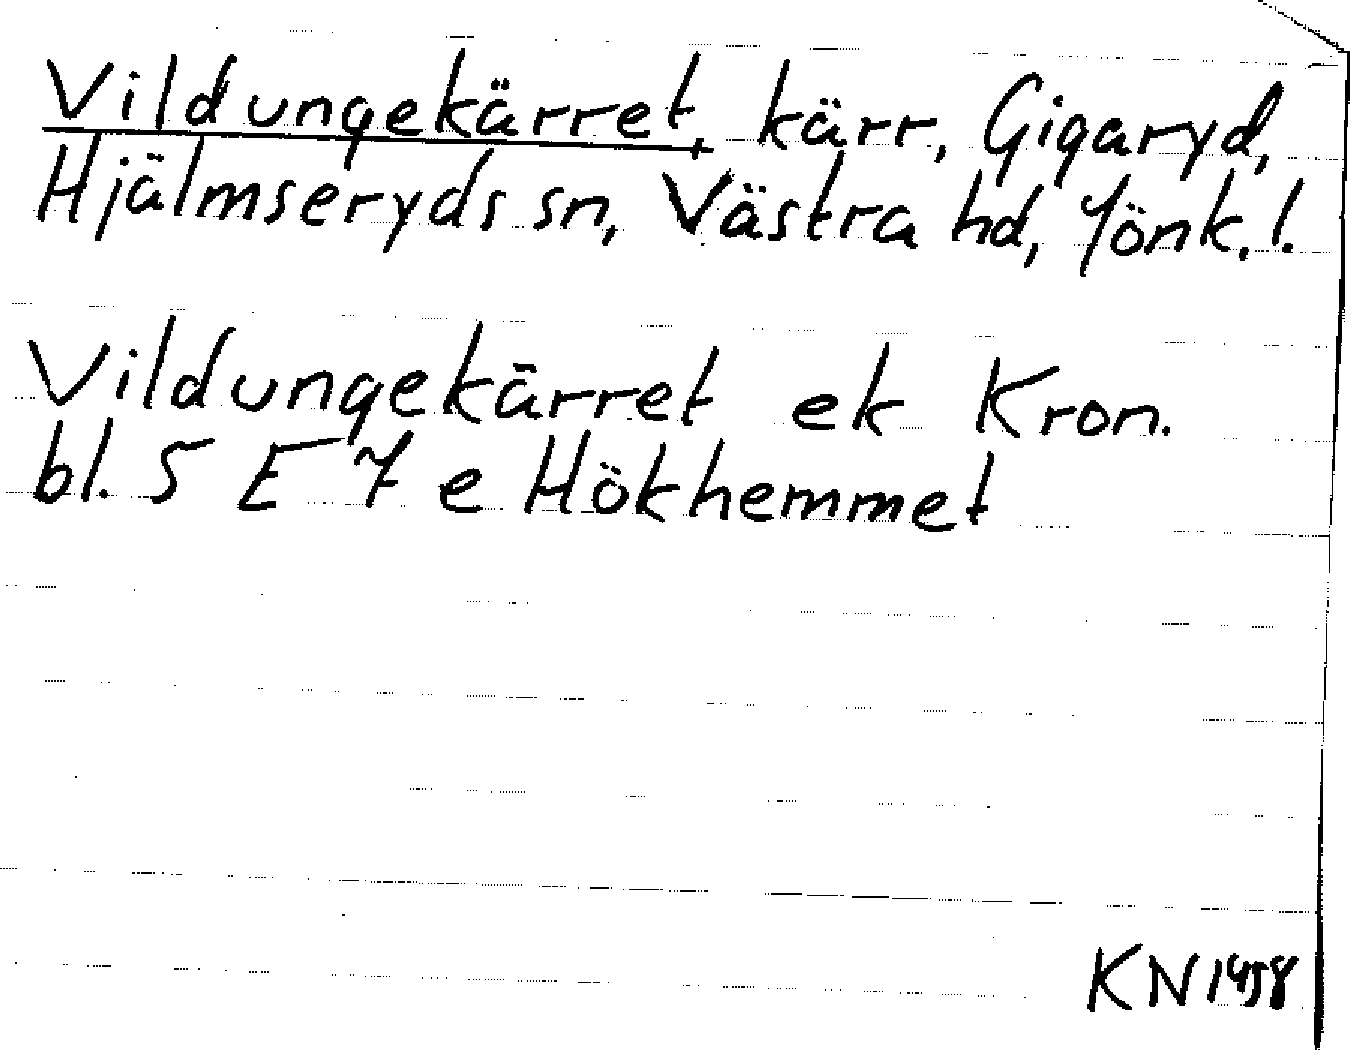 Vildungekärret, kärr, Gigaryd,
Hjälmseryds sn, Västra hd, Jönk. l.
Vildungekärret ek Kron.
bl. 5 E 7 e Hökhemmet
KN 1958